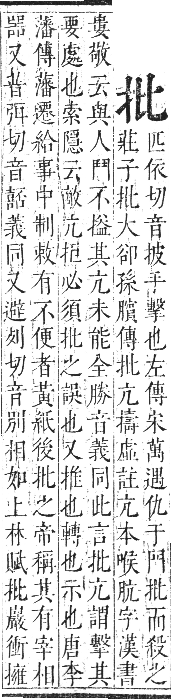 批 匹依切音披手擊也左傳宋萬遇仇于門批而殺之
莊子批大卻孫臏傳批亢擣虛註亢本喉肮字漢書
婁敬云與人鬥不搤其亢未能全勝音義同此言批亢謂擊其
要處也索隱云敵亢拒必須批之誤也又推也轉也示也唐李
藩傳藩遷給事中制敕有不便者黃紙後批之帝稱其有宰相
噐又普弭切音諀義同又避列切音別相如上林賦批巖衝擁